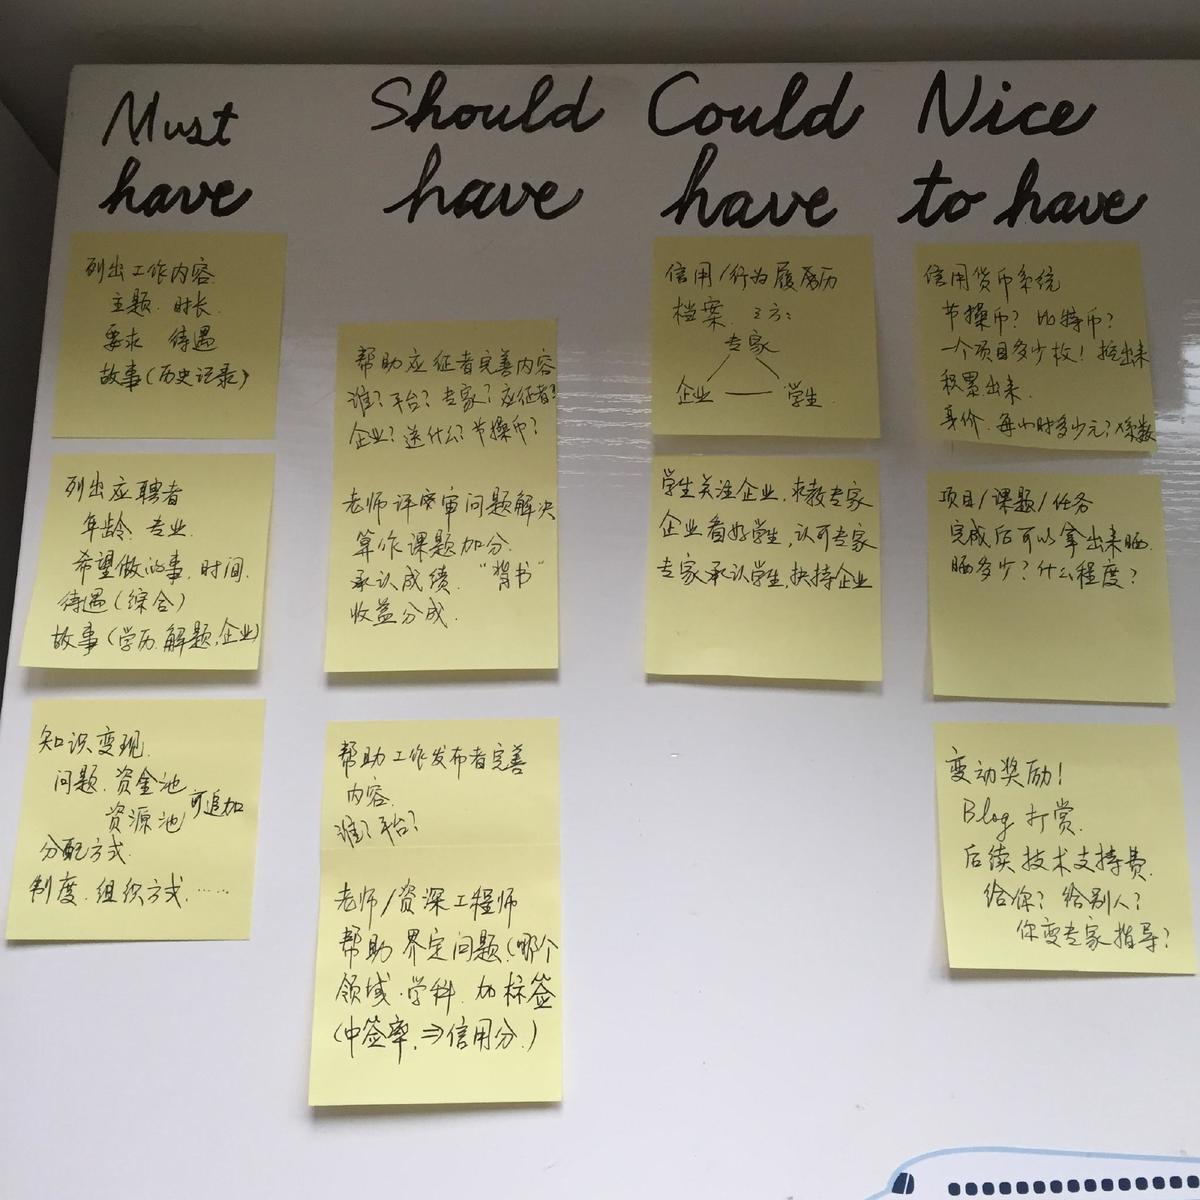 Must
have
列出工作内容.
主题. 时长.
要求 待遇
故事(历史记录)
列出应聘者
年龄. 专业.
希望做的事. 时间.
待遇(综合)
故事(学历.解题.企业)
知识变现.
问题. 资金池
资源池 可追加
分配方式.
制度. 组织方式. ……
Should
have
帮助应征者完善内容
谁? 平台? 专家? 应征者?
企业? 送什么? 节操币?
老师评审问题解决
算作课题加分.
承认成绩. "背书"
收益分成.
帮助工作发布者完善
内容.
谁? 平台?
老师/资深工程师
帮助界定问题.(哪个
领域.学科. 加标签
(中签率. ⇒信用分.)
Could
have
信用/行为履历
档案. 三方:
专家
企业 — 学生.
学生关注企业, 求教专家
企业看好学生, 认可专家
专家承认学生, 扶持企业
Nice
to have
信用货币系统
节操币? 比特币?
一个项目多少枚! 挖出来
积累出来.
身价. 每小时多少元? 系数
项目/课题/任务
完成后可以拿出来晒.
晒多少? 什么程度?
变动奖励!
Blog 打赏.
后续技术支持费.
给你? 给别人?
你变专家指导?